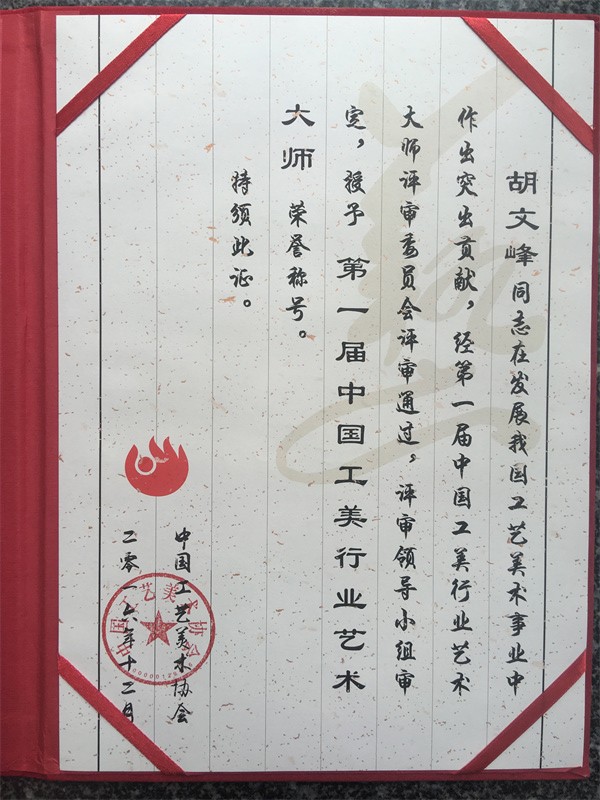 胡文峰同志在发展我国工艺美术事业中
作出突出贡献，经第一届中国工美行业艺术
大师评审委员会评审通过，评审领导小组审
定，授予 第一届中国工美行业艺术
大师 荣誉称号。
特颁此证。
中国工艺美术协会
二零一六年十二月
中国工艺美术协会